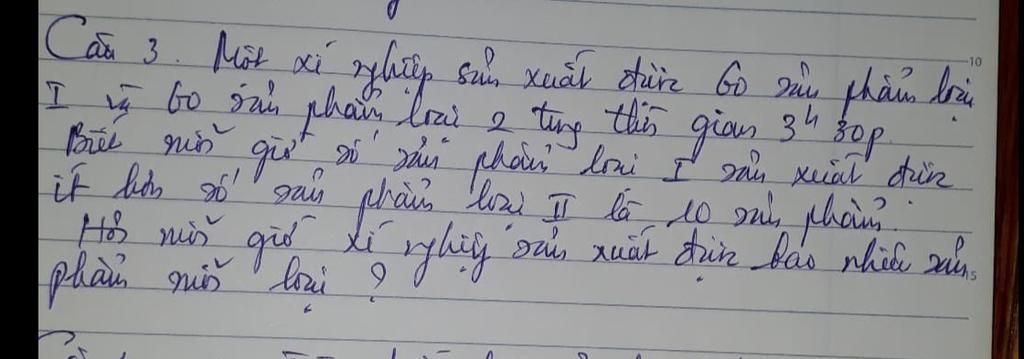 Câu 3. Một xí nghiệp sản xuất được 60 sản phẩm loại
I và 60 sản phẩm loại 2 trong thời gian 3h 30p.
Biết mỗi giờ số sản phẩm loại I sản xuất được
ít hơn số sản phẩm loại II là 10 sản phẩm.
Hỏi mỗi giờ xí nghiệp sản xuất được bao nhiêu sản
phẩm mỗi loại ?
10